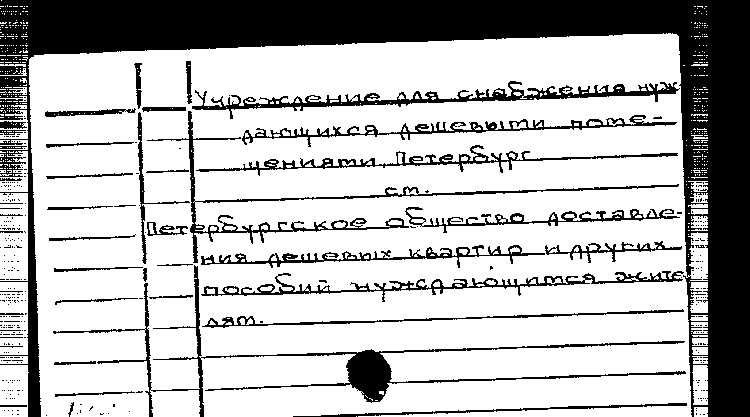 Учреждение для снабжения нуж-
дающихся дешевыми поме-
щениями, Петербург
см.
Петербургское общество доставле-
ния дешевых квартир и других
пособий нуждающимся жите
лям.